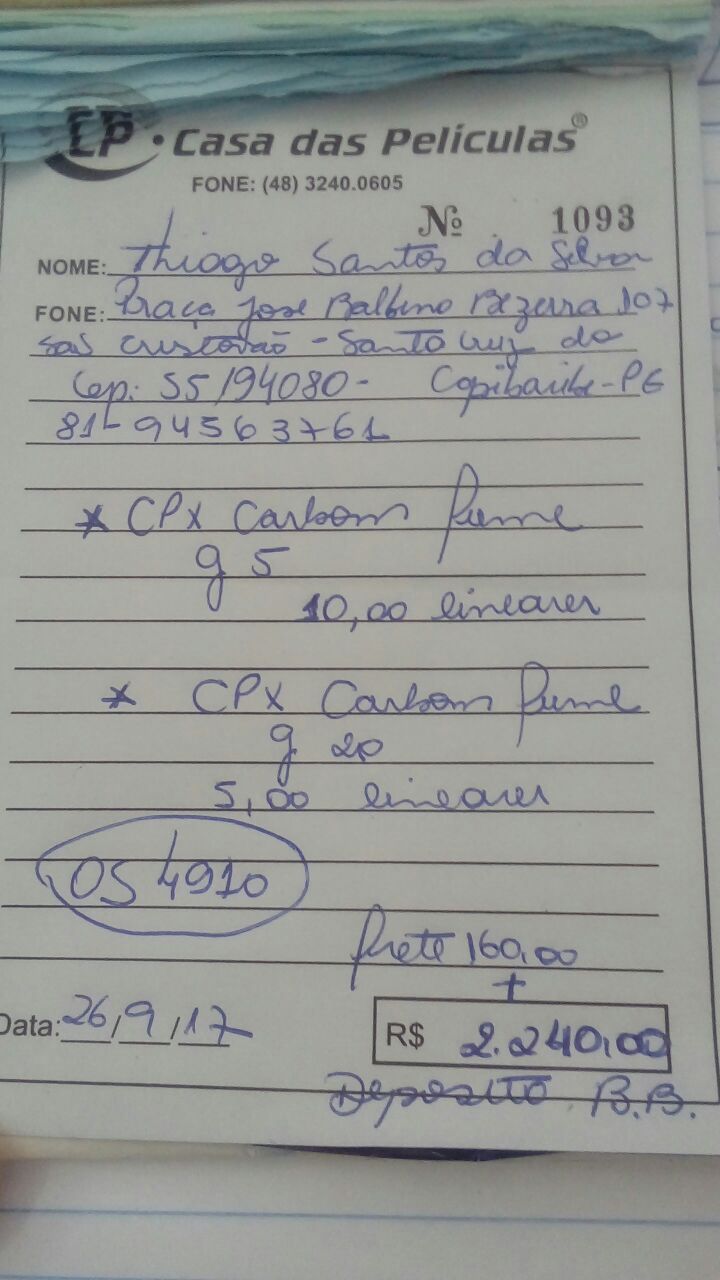 CP • Casa das Películas®
FONE: (48) 3240.0605
Nº 1093
NOME: Thiago Santos da Silva
FONE: Praça Jose Balbino Bezerra 107
sao cristovão - Santa Cruz do
Cep: 55194080 - Capibaribe - PE
81-94563761
* CPX Carbom fume
g 5
10,00 lineares
* CPX Carbom fume
g 20
5,00 lineares
OS 4910
frete 160,00
+
Data: 26/9/17 R$ 2.240,00
Deposito B.B.